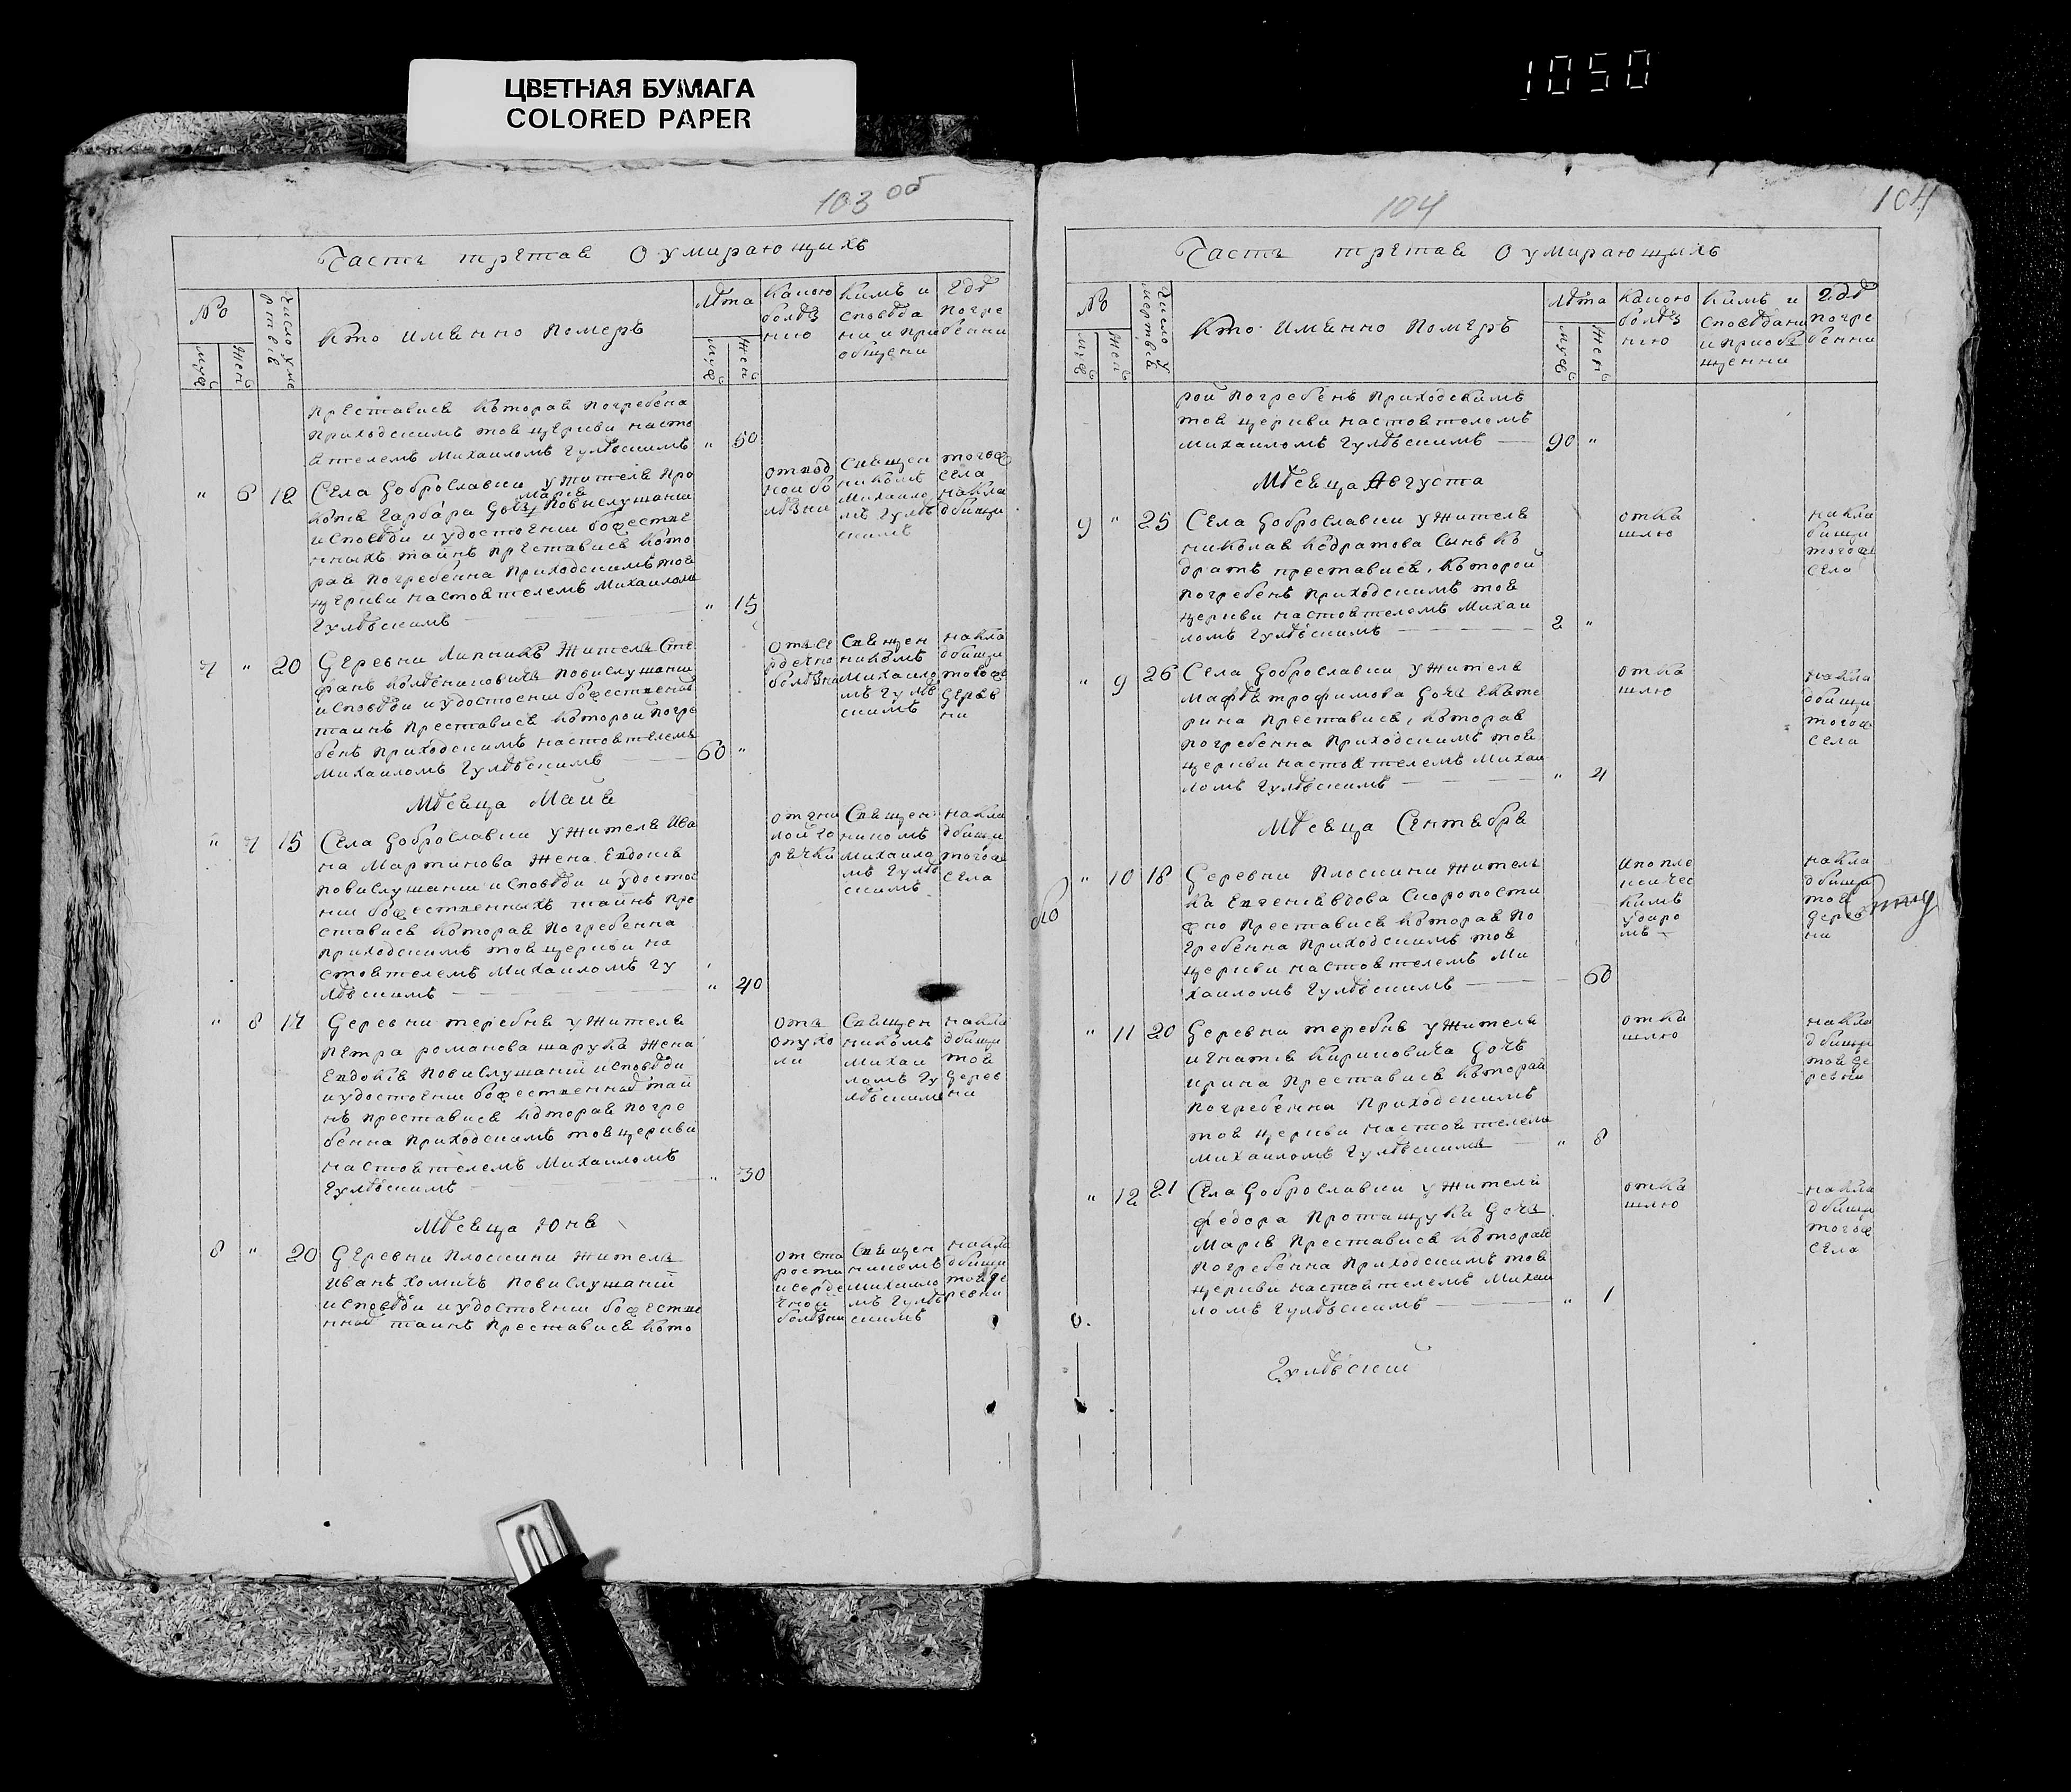 ЦВЕТНАЯ БУМАГА
COLORED PAPER
1050
103 об
Часть третая О умирающихъ
№
муж
жен
Число уме
ртвія
Кто именно померъ
Лѣта
муж
жен
Какою
болѣз
нію
Кимъ и
сповѣда
ни и при
общени
Гдѣ
погре
бенни
преставися которая погребена
приходскимъ тоя церкви насто
ятелемъ Михаиломъ Гулѣвскимъ
" 50
" 6 12
Села Доброславки у жителя Про
копія Гарбара дочь Марія повислушании
исповѣди и удостоении божестве
нныхъ таинъ преставися кото
рая погребенна приходскимъ тоя
церкви настоятелемъ Михаиломъ
Гулѣвскимъ
" 15
Свищен
никомъ
Михаило
мъ Гулѣв
скимъ
тогож
села
накла
дбищи
7 " 20
Деревни Липникъ жителъ Сте
фанъ повислушании
исповѣди и удостоении божественныхъ
таинъ преставися которой погре
бенъ приходскимъ настоятелемъ
Михаиломъ Гулѣвскимъ
60 "
Свищен
никомъ
Михаило
мъ Гулѣв
скимъ
накла
дбищи
тоеож
дерев
ни
Мѣсяца Маия
" 7 15
Села Доброславки у жителя Ива
на Мартинова жена Евдокія
повислушании исповѣди и удостое
нии божественныхъ таинъ пре
ставися которая погребенна
приходскимъ тоя церкви на
стоятелемъ Михаиломъ Гу
лѣвскимъ
" 40
отгни
лой го
рячки
Свищен
никомъ
Михаило
мъ Гулѣв
скимъ
накла
дбищи
тогож
села
" 8 17
Деревни теребня у жителя
Петра романова шарука жена
Евдокія повислушании исповѣди
и удостоении божественныхъ таи
нъ преставися которая погре
бенна приходскимъ тоя церкви
настоятелемъ Михаиломъ
Гулѣвскимъ
" 30
отъ
опухо
ли
Свищен
никомъ
Михаи
ломъ Гу
лѣвскимъ
накла
дбищи
тоя
дерев
ни
Мѣсяца Юня
8 " 20
Деревни Плоскини жителъ
Иванъ Хомичъ повислушании
исповѣди и удостоении божестве
нныхъ таинъ преставися кото
отста
рости
исерде
чной
болѣзни
Свищен
никомъ
Михаило
мъ Гулѣв
скимъ
накла
дбищи
тояде
ревни
104
104
Часть третая О умирающыхъ
№
муж
жен
Число у
мертвія
Кто именно померъ
Лѣта
муж
жен
Какою
болѣз
нію
Кимъ и
сповѣдани
и приобъ
щенни
Гдѣ
погре
бенни
рои погребенъ приходскимъ
тоя церкви настоятелемъ
Михаиломъ Гулѣвскимъ
90 "
Мѣсяца Августа
9 " 25
Села Доброславки у жителя
николая кодратова Сынъ Ко
дратъ преставися, которой
погребенъ приходскимъ тоя
церкви настоятелемъ Михаи
ломъ Гулѣвскимъ
2 "
откa
шлю
накла
бищи
тогож
села
" 9 26
Села Доброславки у жителя
Мафѣя трофимова дочь Екате
рина преставися, которая
погребенна приходскимъ тоя
церкви настоятелемъ Михаи
ломъ Гулѣвскимъ
" 4
отка
шлю
накла
дбищи
тогож
села
Мѣсяца Сентября
" 10 18
Деревни Плоскини жителъ
ка Евгенія вдова скоропости
жно преставися которая по
гребенна приходскимъ тоя
церкви настоятелемъ Ми
хаиломъ Гулѣвскимъ
60
ипопле
ксичес
кимъ
ударо
мъ
накла
дбищи
тоя
дерев
ни
" 11 20
Деревни теребня у жителя
игнатія Кириловича дочъ
ирина преставися которая
погребенна приходскимъ
тоя церкви настоятелемъ
Михаиломъ Гулѣвскимъ
" 8
отка
шлю
накла
дбищи
тоя де
ревни
" 12 21
Села Доброславки у жителя
федора Протащука дочь
Марія преставися которая
погребенна приходскимъ тоя
церкви настоятелемъ Михаи
ломъ Гулѣвскимъ
" 1
отка
шлю
накла
дбищи
тогож
села
Гулѣвский